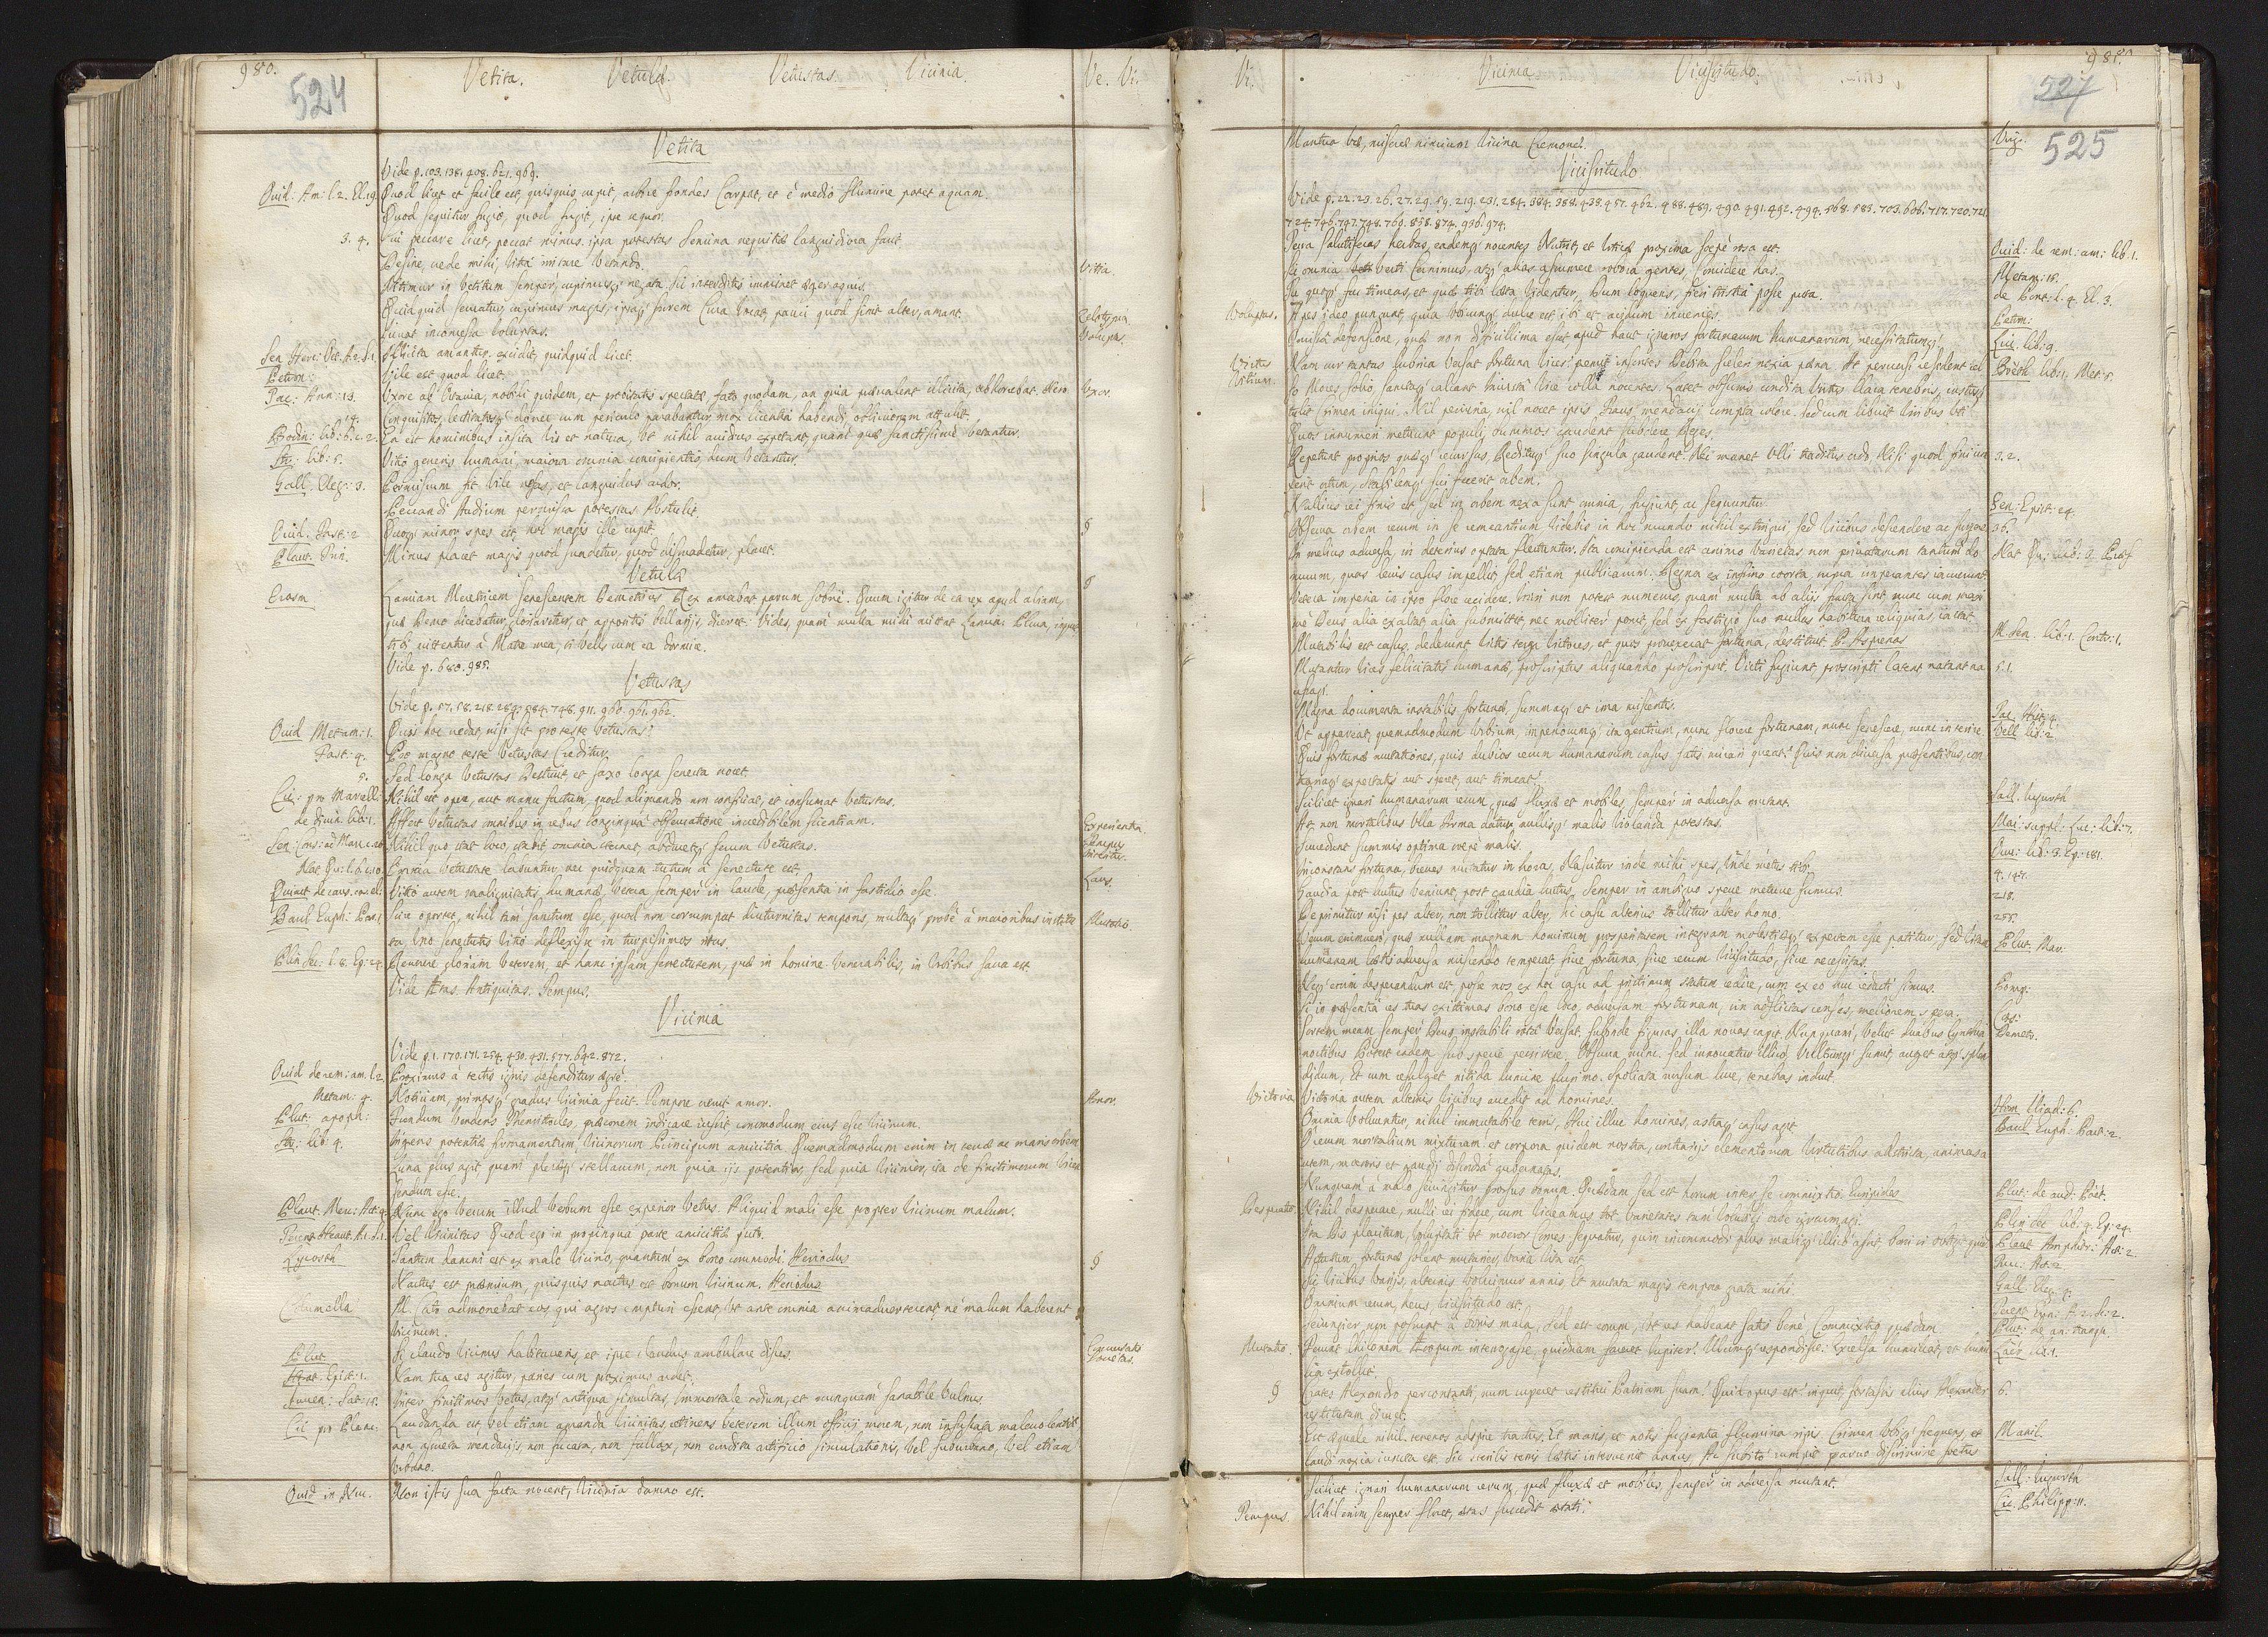 980.
524
Vetita. Vetula. Vetustas. Vicinia.
Ve. Vi.
Vetita
Vide p. 103. 138. 408. 621. 969.
Ovid: Am: l. 2. El. 19. Quod licet et facile est, quisquis cupit, arbore frondes Carpat, et è medio flumine potet aquam.
Quod sequitur fugio, quod fugit, ipse sequor.
3. 4. Cui peccare licet, peccat minus. ipsa potestas Semina nequitiæ languidiora facit.
Desine, crede mihi, vitia irritare vetando. Vitia.
Nitimur in vetitum semper, cupimusq; negata. Sic interdictis imminet æger aquis.
Quidquid servatur, cupimus magis, ipsaq; furem Cura vocat, pauci quod sinit alter, amant. Zelotypia
Iuvat inconcessa voluptas. Volupta.
Sen. Herc: Oet. A. 2. S. 1. Illicita amantur, excidit, quidquid licet.
Petron: Vile est quod licet.
Tac: Ann: 13. Uxore ab Octavia, nobili quidem, et probitatis spectatæ, fato quodam, an quia prævalent illicita, abhorrebat Nero. Uxor
14. Conquisitos, lectitatosq; donec cum periculo parabantur, mox licentia habendi oblivionem attulit.
Bodin: lib: 6. c. 2. Ea est hominibus insita vis et natura, ut nihil avidius expetant, quàm quæ sanctissimè vetantur.
lib: 5. Vitio generis humani, maiora omnia concipientis, dum vetantur.
Gall. Eleg: 3. Permissum fit vile nefas, et languidus ardor.
Peccandi studium permissa potestas Abstulit.
Ovid. Fast: 2 Quoq; minor spes est, hoc magis ille cupit.
Plaut. Trin. Minus placet magis quod suadetur, quod dissuadetur, placet.
Vetula
Erasm Lamiam Meretricem senescentem Demetrius Rex amabat parum sobriè. Quum igitur de ea rex apud aliam,
quæ Demo dicebatur, gloriaretur, et appositis bellarijs, diceret: Vides, quàm multa mihi mittat Lamia: Plura, inquit
tibi mittentur à Matre mea, si velis cum ea dormire.
Vide p. 680. 985.
Vetustas
Vide p. 57. 58. 218. 289. 584. 748. 911. 960. 961. 962.
Ovid Metam: 1. Quis hoc credat, nisi sit pro teste vetustas?
Fast: 4. Pro magno teste vetustas Creditur.
5. Sed longa vetustas Destruit, et saxo longa senecta nocet.
Cic: pro Marcell: Nihil est opere, aut manu factum, quod aliquando non conficiat, et consumat vetustas.
de divin. lib: 1. Affert vetustas omnibus in rebus longinqua observatione incredibilem scientiam. Experientia
Sen: Cons: ad Marc. Nihil quo stat loco, stabit omnia sternet, abducetq; secum vetustas. Tempus
Nat. Qu: l. 6. c. 10. Privata vetustate labuntur, nec quidquam tutum à senectute est.
Quint de caus. cor. el: Vitio autem malignitatis humanæ, vetera semper in laude, præsentia in fastidio esse. Laus.
Baul Euph: Par. 1 Scire oportet, nihil tam sanctum esse, quod non corrumpat diuturnitas temporis, multaq; probè à maioribus instituta Mutatio.
ta, suo senectutis vitio deflexisse in turpissimos ritus.
Plin Sec: l. 8. Ep: 24. Reverere gloriam veterem, et hanc ipsam senectutem, quæ in homine venerabilis, in Urbibus sacra est.
Vide Ætas. Antiquitas. Tempus.
Vicinia
Vide p. 1. 170. 171. 254. 430. 431. 577. 692. 872.
Ovid de rem: am. l. 2. Proximus à tectis ignis defenditur ægrè.
Metam: 4. Notitiam, primosq; gradus vicinia fecit. Tempore crevit amor. Amor
Plut: apoph: Fundum vendens Themistocles, præconem indicare iussit commodum eius esse vicinum.
lib: 4. Ingens potentiæ firmamentum, vicinorum Principum amicitia. Quemadmodum enim in terras ac maris orbem
Luna plus agit quàm pleriq; stellarum, non quia ijs potentior, sed quia vicinior, ita de finitimorum
sendum esse.
Plaut. Merc: Act. 4. Nunc ego verum illud verbum esse experior vetus. Aliquid mali esse propter vicinum malum.
Terent Heaut. A. 1. S. 1. Vel vicinitas Quod ego in propinqua parte amicitiæ puto.
Lycosth Tantum damni est ex malo vicino, quantum ex bono commodi. Hesiodus
Nactus est præmium, quisquis nactus est bonum vicinum. Hesiodus
Columella M. Cato admonebat eos, qui agros empturi essent, ut ante omnia animadverterent ne malum haberent
vicinum.
Plut Si claudo vicinus habitaveris, et ipse claudus ambulare disces.
Horat. Epist: 1. Nam tua res agitur, paries cum proximus ardet.
Iuven: Sat: 15. Inter finitimos vetus, atq; antiqua simultas, Immortale odium, et nunquam sanabile vulnus
Cic pro Planc: Laudanda est, vel etiam amanda vicinitas, retinens veterem illum officij morem, non infuscata malevolentiâ
non assueta mendacijs, non fucosa, non fallax, non erudita artificio simulationis, vel suburbano, vel etiam
Urbano.
Ovid in Nuc. Non istis sua facta nocent, vicinia damno est.
Vi. Vicinia Vicissitudo.
981.
527
525
Mantua væ, miseræ nimium vicina Cremonæ. Virg:
Vicissitudo
Vide p. 22. 23. 26. 27. 29. 59. 219. 231. 284. 384. 388. 438. 457. 462. 488. 489. 490. 491. 492. 494. 568. 583. 703. 606. 717. 720. 721.
724. 746. 747. 748. 769. 858. 874. 936. 974.
Terra salutiferas herbas, eademq; nocentes Nutrit, et Urticæ proxima sæpè rosa est. Ovid: de rem: am: lib. 1.
Sic omnia verti Cernimus, atq; alias assumere robora gentes, Concidere has. Metam: 15.
Tu quoq; fac timeas, et quæ tibi læta videntur, Dum loqueris, fieri tristia posse puta. de Pont. l. 4. El. 3.
Voluptas. Apes ideo pungunt, quia ubicunq; dulce est ibi et acidum invenies. Petron:
Omissâ defensione, quæ non difficillima esset apud haut ignaros fortunarum humanarum, necessitatumq; Liv. lib: 9.
Virtus Nam cur tantas lubrica versat Fortuna vices? premit insontes Debita sceleri noxia pœna. At perversi resident cel Boëth. lib: 1. Met: 5.
Vitium. so Mores solio, sanctaq; calcant Iniustâ vice colla nocentes. Latet obscuris condita virtus Clara tenebris, iustusq;
tulit Crimen iniqui. Nil periuria, nil nocet ipsis Fraus mendaci compta colore. Sed cum libuit viribus uti
Quos innumeri metuunt populi, summos gaudent subdere Reges.
Repetunt proprios quæq; recursus, Redituq; suo singula gaudent. Nec manet ulli traditus ordo Nisi quod fini iun 3. 2.
xerit ortum, Stabilemq; sui fecerit orbem.
Nullius rei finis est, sed in orbem nexa sunt omnia, fugiunt ac sequuntur. Sen: Epist: 24.
Observa orbem rerum in se remeantium, videbis in hoc mundo nihil extingui, sed vicibus descendere ac surgere 36.
In melius adversa, in deterius optata flectuntur. Ita concipienda est animo varietas non privatarum tantùm do Nat Qu. lib: 3. Præf
muum, quas levis casus impellit, sed etiam publicarum. Regna ex infimo coorta, supra imperantes iacuerunt.
Vetera imperia in ipso flore cecidere. Iniri non potest numerus, quàm multa ab alijs fracta sint, nunc cum maxi
mè Deus alia exaltat, alia submittit, nec molliter ponit, sed ex fastigio suo nullas habitura reliquias, iactat.
Mutabilis est casus, dederunt victis terga victores, et quos provexerat fortuna, destituit. P. Asprenas M. Sen. lib: 1. Contr: 1.
Mutantur vices felicitatis humanæ, proscriptus aliquando proscripsit. Victi fugiunt, proscripti latent natant nau 5. 1.
fragi.
Magna documenta instabilis fortunæ, summaq; et ima miscentis. Tac. Hist: 4.
Ut appareat, quemadmodum Urbium, imperiorumq; ita gentium, nunc florere fortunam, nunc senescere, nunc interire. Vell lib: 2.
Quis fortunæ mutationes, quis dubios rerum humanarum casus, satis mirari queat? Quis non diversa præsentibus, con
trariaq; expectatis aut speret, aut timeat?
Scilicet ignari humanarum rerum, quæ fluxæ et mobiles, semper in adversa mutant. Sall: Iugurth
At non mortalibus ulla Arma datur, nullisq; malis violanda potestas. Mai: suppl: Luc: lib: 7.
Succedunt summis optima sæpè malis. Owen: lib: 3. Ep: 181.
Inconstans fortuna, breves mutatur in horas, Nascitur inde mihi spes, Inde metus tibi. 4. 147.
Gaudia post luctus veniunt, post gaudia luctus, Semper in ambiguo speve metuve sumus. 218.
Deprimitur nisi pes alter, non tollitur alter, Sic casu alterius tollitur alter homo. 255.
Verum enimverò, quæ nullam magnam hominum prosperitatem integram molestiæq; expertem esse patitur, sed vitam Plut. Mar.
humanam lætis adversa miscendo temperat sive fortuna sive rerum vicissitudo, sive necessitas.
Neq; enim desperandum est, posse nos ex hoc casu ad pristinum statum redire, cum ex eo huc redacti simus. Pomp:
Si in præsentia res tuas existimas bono esse loco, adversam fortunam, sin afflictas censes, meliorem spera. Cæs:
Sortem meam semper Deus instabili rotâ Versat, subinde figuras illa novas capit. Nunquam, velut duabus Cynthia Demetr.
noctibus Potest eadem sub specie persistere. Obscura nunc. Sed innovatur illico, Vultumq; sumit, auget atq; splen
didum, Et cum refulget nitida lumine plurimo. Spoliata rursum luce, tenebras induit.
Victoria Victoria autem alternis vicibus accedit ad homines. Hom. Iliad: 6.
Omnia volvuntur, nihil immutabile terris, Huc illuc homines, astraq; casus agit. Baul Euph: Part: 2.
Rerum mortalium mixturam et corpora quidem nostra, contrarijs elementorum virtutibus obstricta, animosa
utem, mœroris et gaudij discordiâ gubernatas.
Nunquam à malo seiungitur prorsus bonum. Quædam sed est horum inter se commixtio. Euripides Plut: de aud: Poët.
Desperatio. Nihil desperare, nulli rei fidere, cum videamus tot varietates tam volubili orbe circumagi. Plin sec lib: 4. Ep: 24.
Ita Dis placitum, voluptati ut mœror Comes sequatur, quin incommodi plus maliq; illico assit, boni si obtigit quid. Plaut Amphitr: Act: 2.
Actutum fortunæ solent mutarier, varia vita est. Truc: Act: 2
Sic vicibus varijs, alternis volvimur annis. Et mutata magis tempora grata mihi. Gall Eleg. 4.
Omnium rerum, heus, vicissitudo est. Terent. Eun: A. 2. Sc: 2.
Seiungier non possunt à bonis mala, Sed est eorum, ut res habeant satis bene Commixtio quædam. Plut: de an: tranq.
Mutatio. Ferunt Chilonem Æsopum interrogasse, quidnam faceret Iupiter? Illumq; respondisse: Excelsa humiliat, et humi Laër lib. 1.
lia extollit.
Crates Alexandro percontanti, num cuperet restitui Patriam suam? Quid opus est? inquit, forsitan alius Alexander 6.
restitutam diruet.
Est æquale nihil. terrenos adspice tractus. Et maris, et notis fugientia flumina ripis Crimen ubiq; frequens, et Manil.
laudi noxia iuncta est. Sic sterilis terris lætis intervenit annus Ac subitò rumpit parvo discrimine fœtus
Scilicet ignari humanarum rerum, quæ fluxæ et mobiles, semper in adversa mutant. Sall: Iugurth
Tempus. Nihil enim semper floret, ætas succedit ætati. Cic. Philipp: 11.